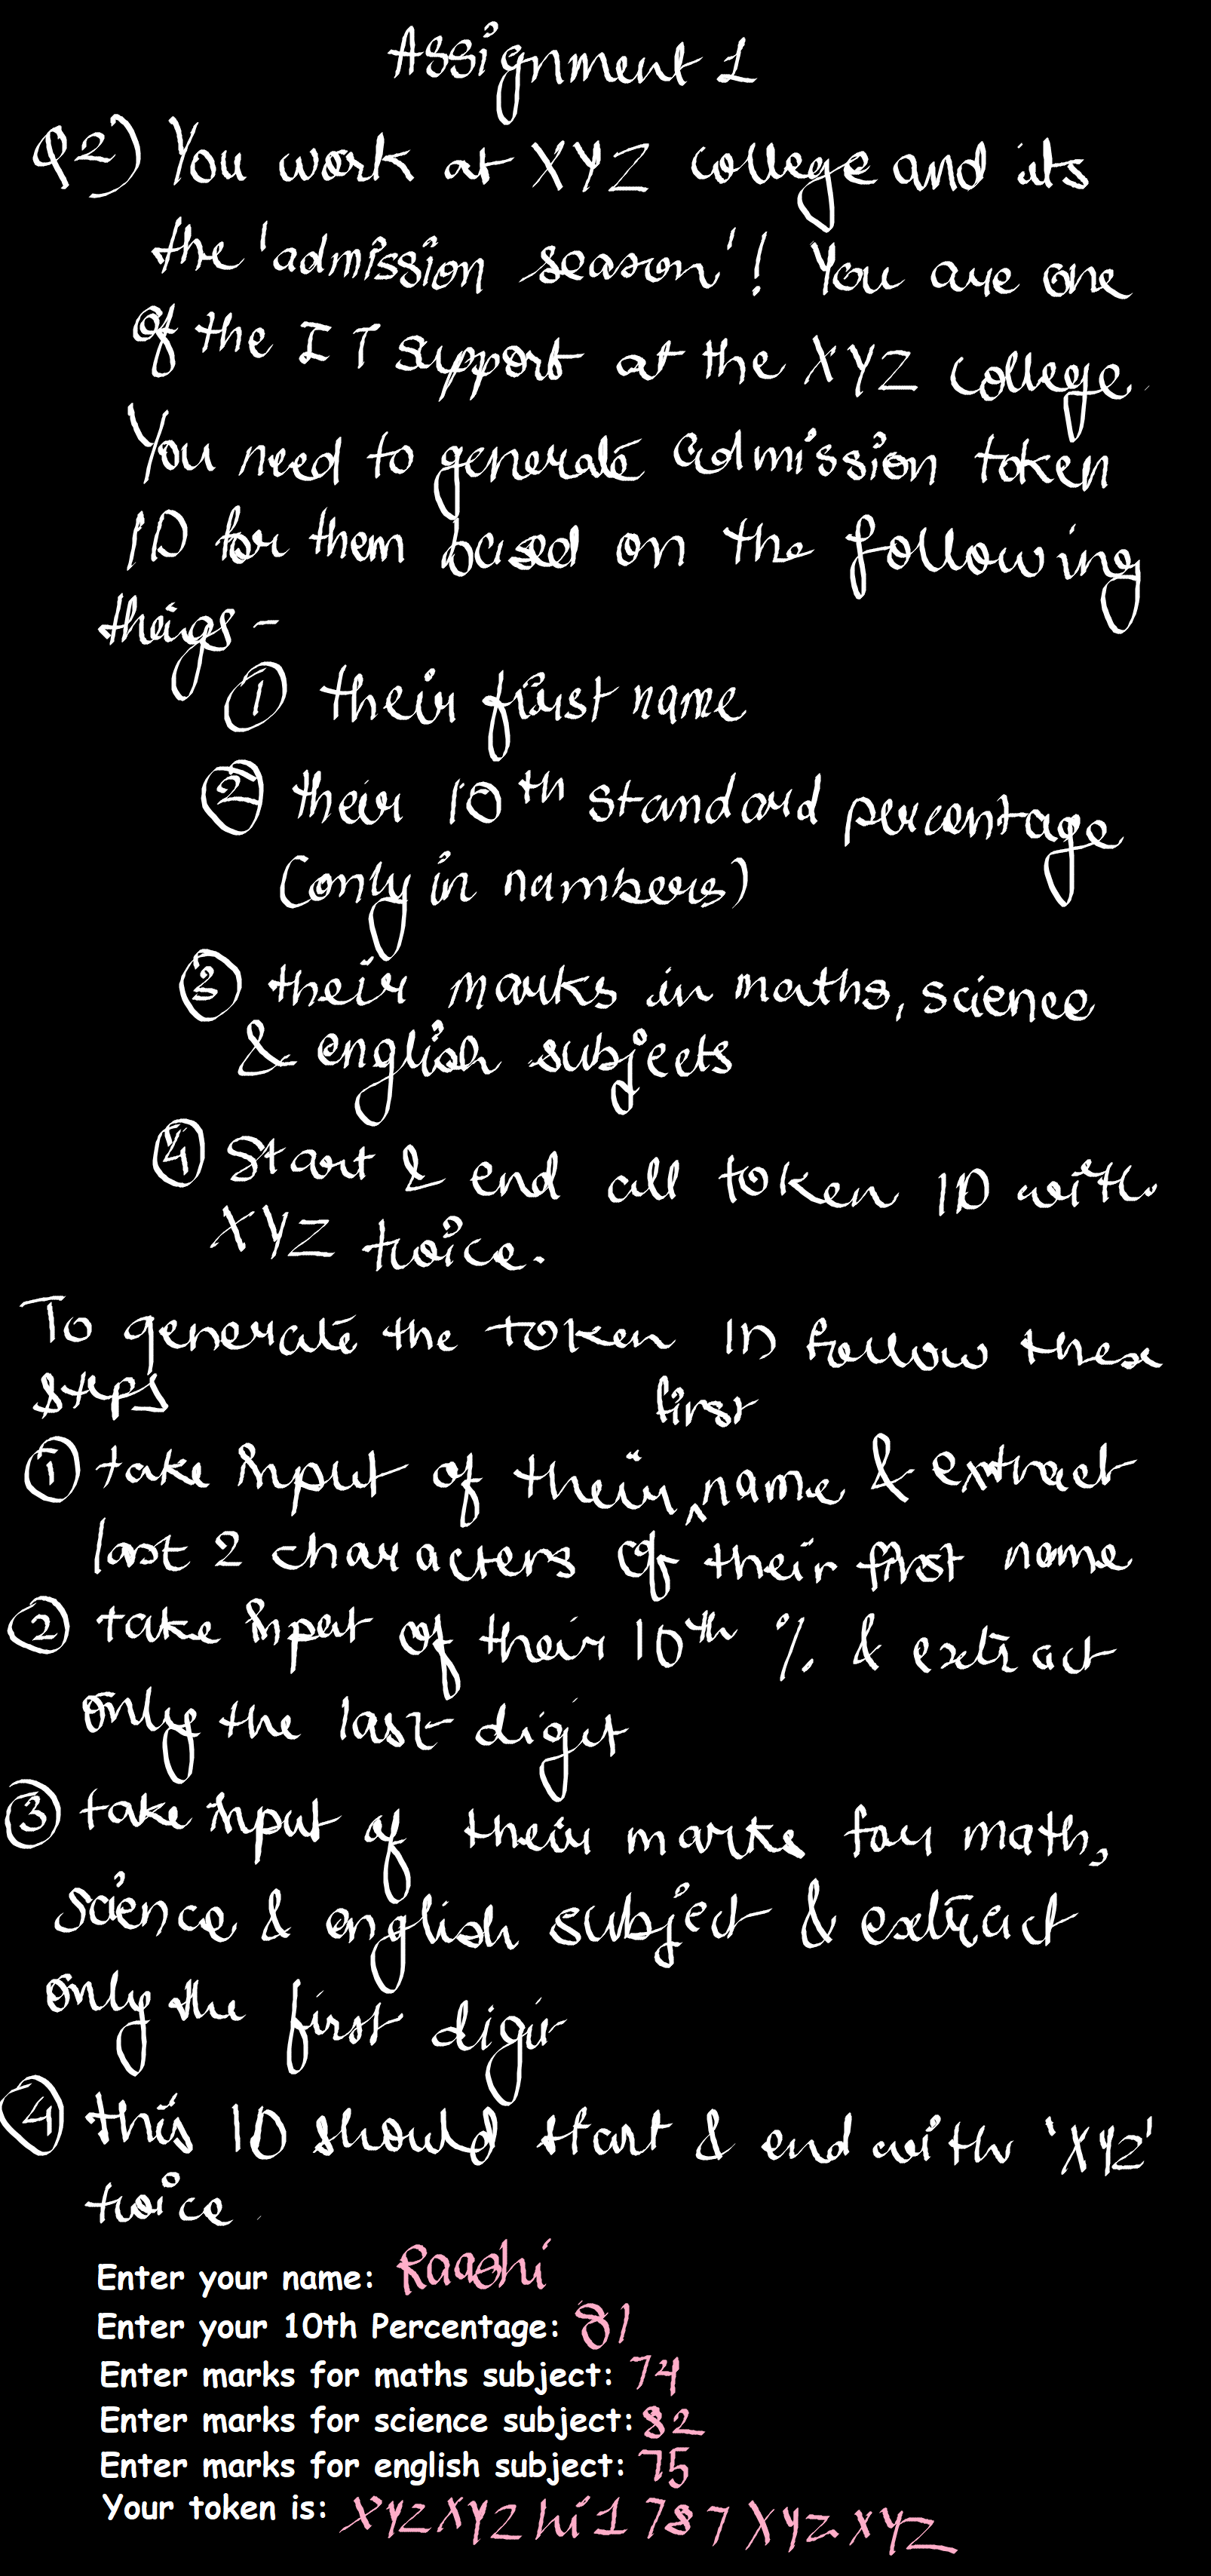 Assignment 1
Q2) You work at XYZ college and its
the 'admission season'! You are one
of the IT support at the XYZ college.
You need to generate admission token
ID for them based on the following
things -
① their first name
② their 10th standard percentage
(only in numbers)
③ their marks in maths, science
& english subjects
④ Start & end all token ID with
XYZ twice.
To generate the token ID follow these
steps
① take input of their first name & extract
last 2 characters of their first name
② take input of their 10th % & extract
only the last digit
③ take input of their marks for math,
science & english subject & extract
only the first digit
④ this ID should start & end with 'XYZ'
twice.
Enter your name: Raashi
Enter your 10th Percentage: 81
Enter marks for maths subject: 74
Enter marks for science subject: 82
Enter marks for english subject: 75
Your token is: XYZXYZhi1787XYZXYZ